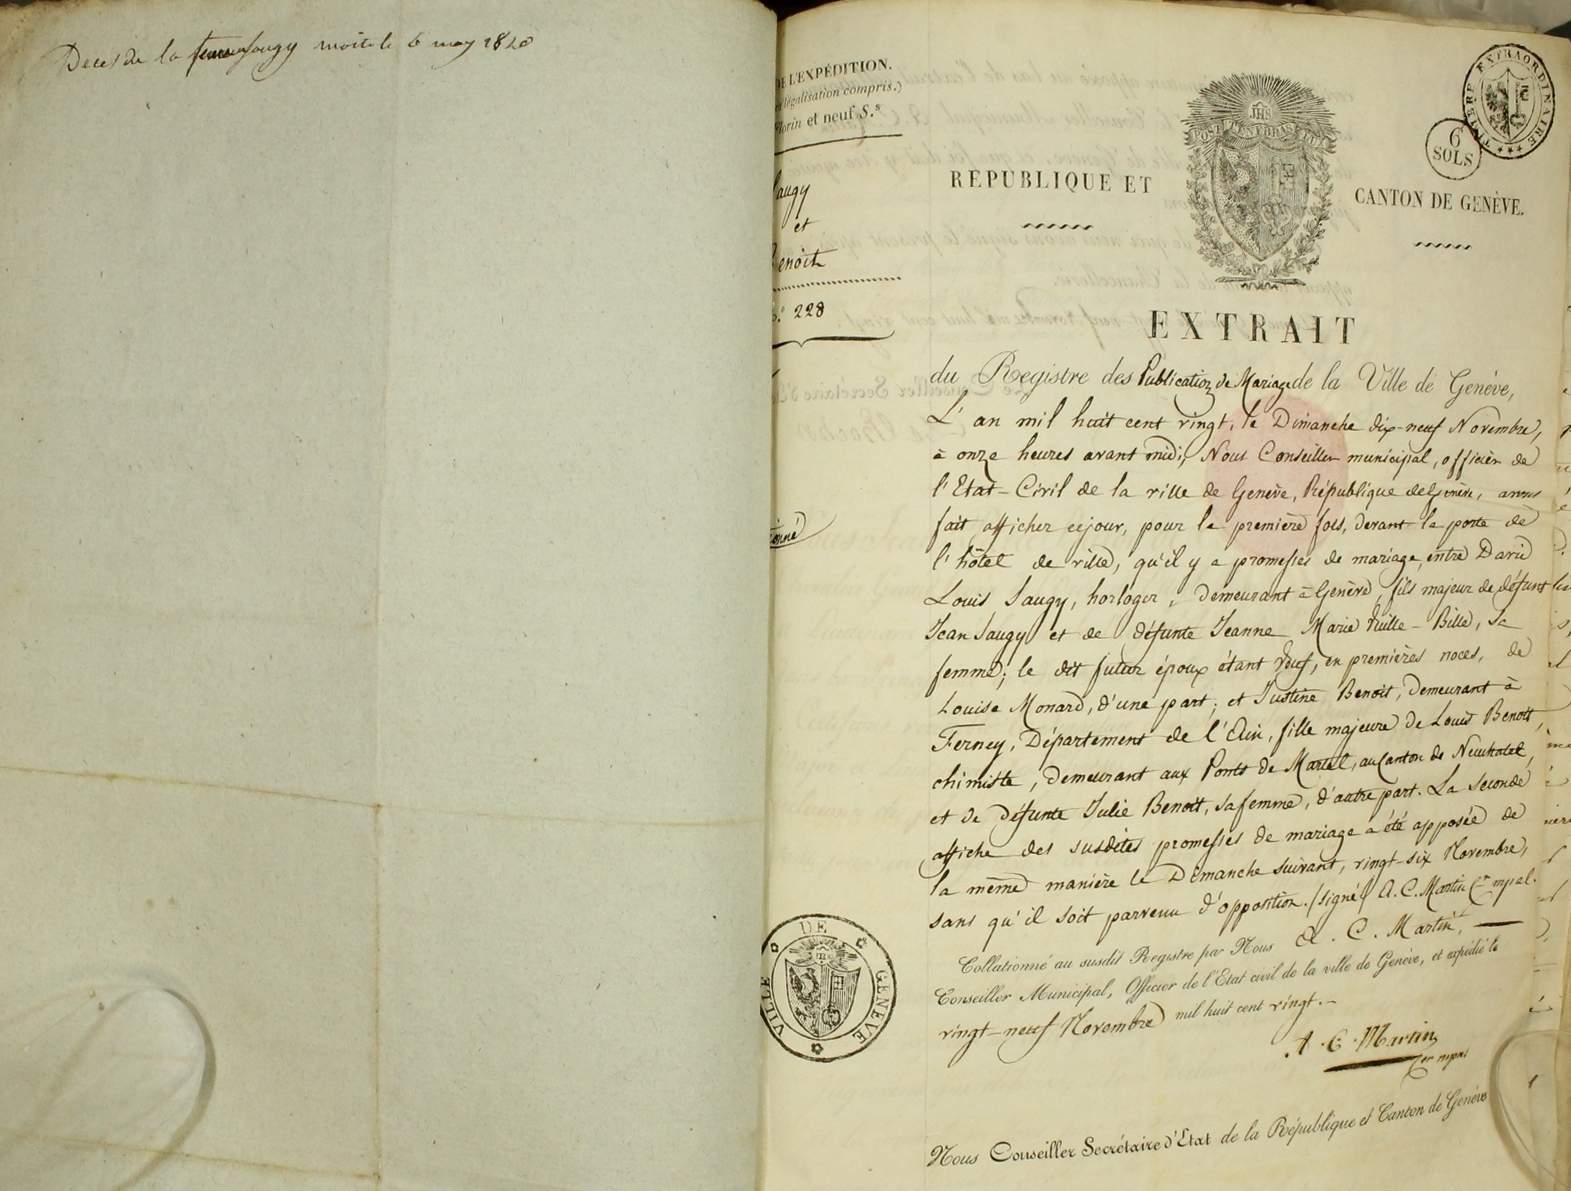 Deces de la femme Saugy morte le 6 may 1820
DE L'EXPÉDITION.
légalisation compris.)
florin et neuf S.s
Saugy
et
Benoit
N.o 228
TIMBRE EXTRAORDINAIRE
6
SOLS
JHS
POST TENEBRAS LUX
RÉPUBLIQUE ET
CANTON DE GENÈVE.
EXTRAIT
du Registre des Publication de Mariage de la Ville de Genève,
L'an mil huit cent vingt, le Dimanche dix-neuf Novembre,
à onze heures avant midi, Nous Conseiller municipal, officier de
l'Etat-Civil de la ville de Genève, République de Genève, avons
fait afficher ce jour, pour la première fois, devant la porte de
l'hôtel de ville, qu'il y a promesses de mariage, entre David
Louis Saugy, horloger, demeurant à Genève, fils majeur de défunt
Jean Saugy et de défunte Jeanne Marie Vuille-Bille, sa
femme; le dit futur époux étant Veuf, en premières noces, de
Louise Monard, d'une part; et Justine Benoit, demeurant à
Ferney, Département de l'Ain, fille majeure de Louis Benoit,
chimiste, demeurant aux Ponts de Martel, au Canton de Neuchatel,
et de défunte Julie Benoit, sa femme, d'autre part. La seconde
affiche des susdites promesses de mariage a été apposée de
la même manière le Dimanche suivant, vingt-six Novembre,
sans qu'il soit parvenu d'opposition. (signé) A. C. Martin Cer mpal.
Collationné au susdit Registre par Nous A. C. Martin,
Conseiller Municipal, Officier de l'Etat civil de la ville de Genève, et expédié le
vingt-neuf Novembre mil huit cent vingt.-
A. C. Martin
Cer mpal
VILLE DE GENÈVE
Nous Conseiller Secrétaire d'Etat de la République et Canton de Genève